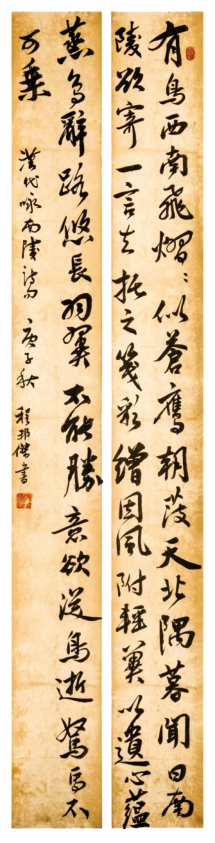 有鳥西南飛熠々似蒼鷹朝發天北隅暮聞日南
陵欲寄一言去托之箋彩繒因風附輕翼以遺心蘊
蒸鳥辭路悠長羽翼不能勝意欲從鳥逝駑馬不
可乘 漢代咏南陵詩句 庚子秋 程邦傑書